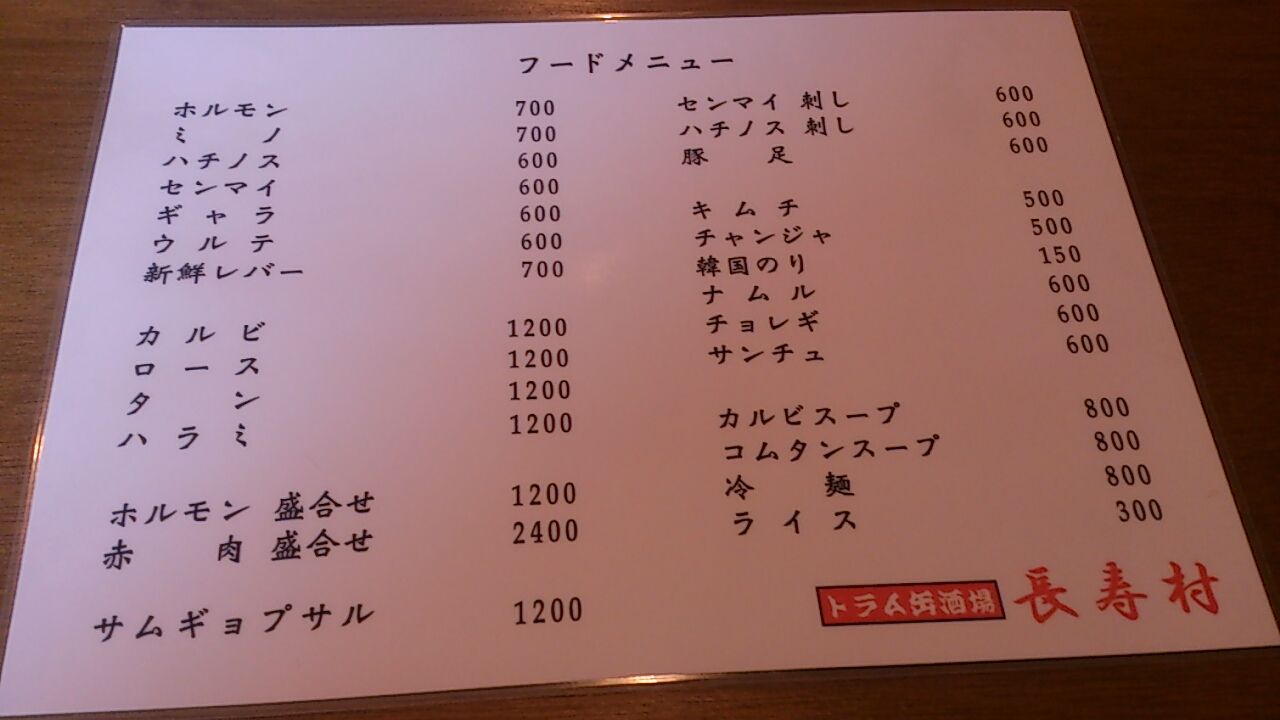 フードメニュー
ホルモン 700
ミノ 700
ハチノス 600
センマイ 600
ギャラ 600
ウルテ 600
新鮮レバー 700
カルビ 1200
ロース 1200
タン 1200
ハラミ 1200
ホルモン 盛合せ 1200
赤肉 盛合せ 2400
サムギョプサル 1200
センマイ 刺し 600
ハチノス 刺し 600
豚足 600
キムチ 500
チャンジャ 500
韓国のり 150
ナムル 600
チョレギ 600
サンチュ 600
カルビスープ 800
コムタンスープ 800
冷麺 800
ライス 300
ドラム缶酒場 長寿村